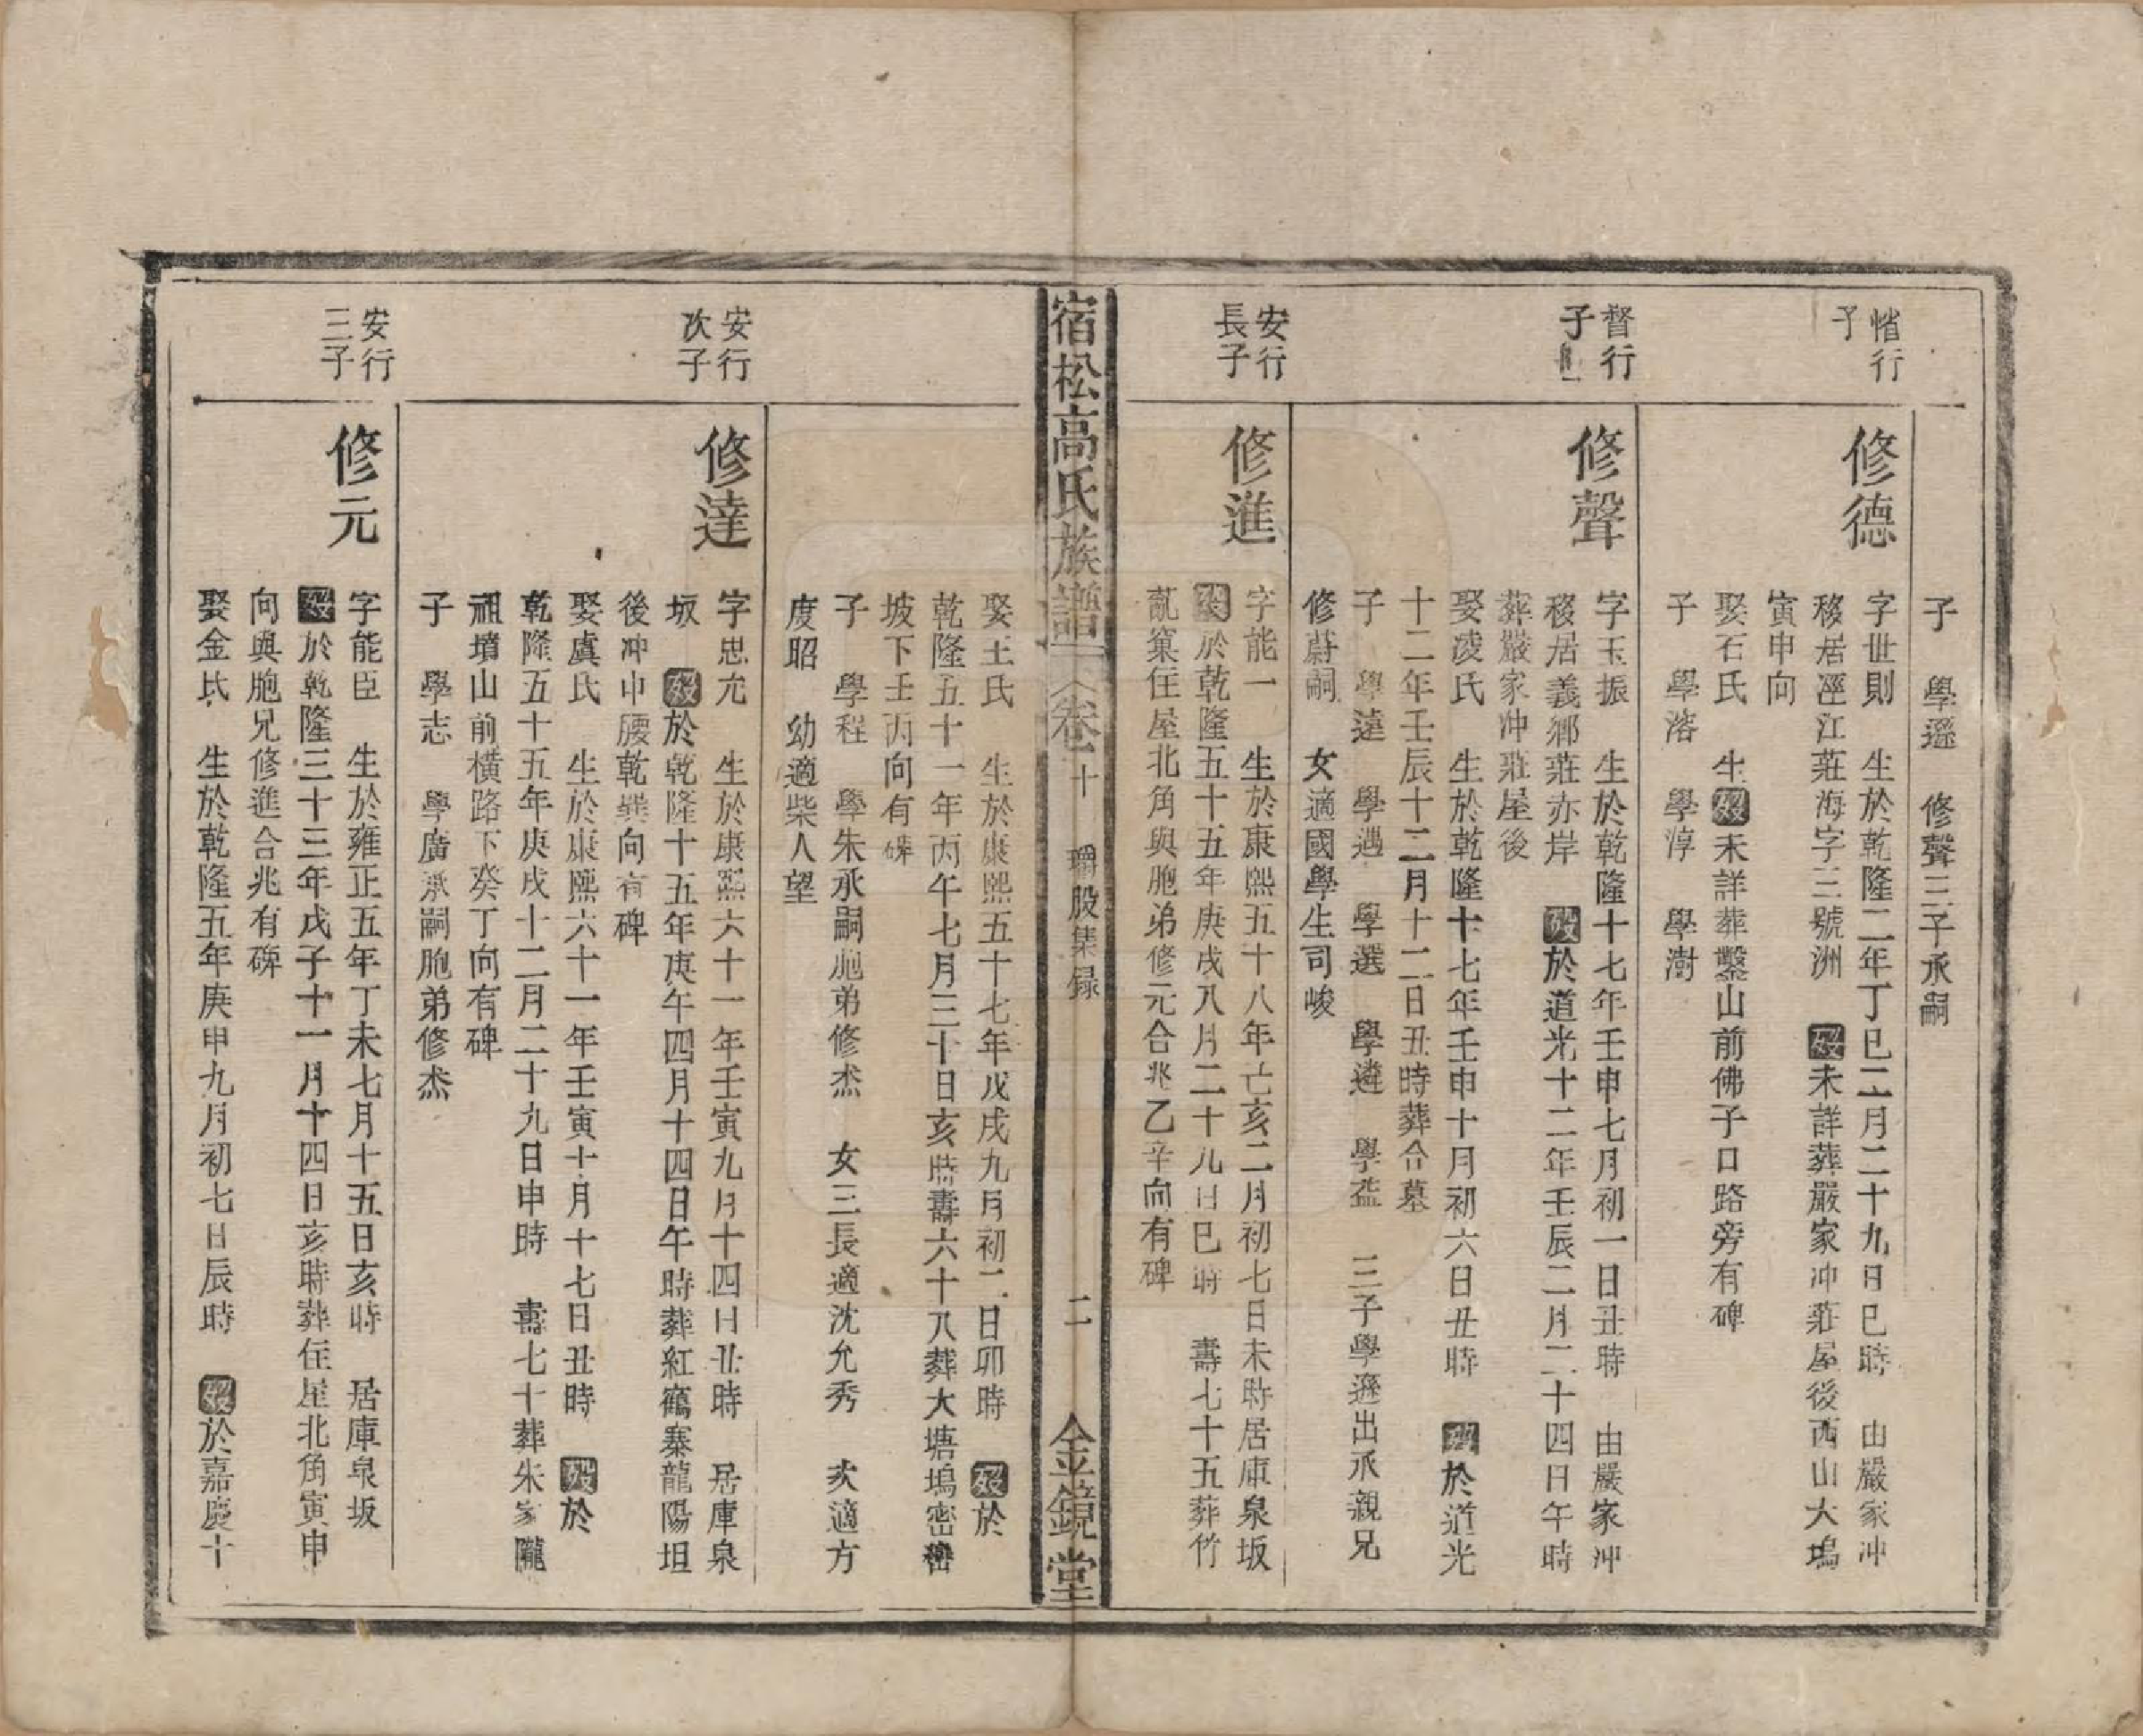 子　學遜　修聲三子承嗣
惰行
子
修德
字世則　生於乾隆二年丁巳二月二十九日巳時　由嚴家冲
移居涇江莊海字三號洲　歿未詳葬嚴家冲莊屋後西山大塢
寅申向
娶石氏　生歿未詳葬鑿山前佛子口路旁有碑
子　學溶　學淳　學澍
督行
子
修聲
字玉振　生於乾隆十七年壬申七月初一日丑時　由嚴家冲
移居義鄉莊赤岸　歿於道光十二年壬辰二月二十四日午時
葬嚴家冲莊屋後
娶凌氏　生於乾隆十七年壬申十月初六日丑時　歿於道光
十二年壬辰十二月十二日丑時葬合墓
子　學達　學遇　學選　學遴　學孟　三子學遜出承親兄
修蔚嗣　女適國學生司峻
安行
長子
修進
字能一　生於康熙五十八年亡亥二月初七日未時居庫泉坂
歿於乾隆五十五年庚戌八月二十九日巳時　壽七十五葬竹
亂窠住屋北角與胞弟修元合兆乙辛向有碑
宿松高氏族譜　卷十　珊股集録　二　金鏡堂
娶王氏　生於康熙五十七年戊戌九月初二日卯時　歿於
乾隆五十一年丙午七月三十日亥時壽六十八葬大塘塢密
坡下壬丙向有碑
子　學程　學朱承嗣胞弟修杰　女三長適沈允秀　次適方
度昭　幼適柴人望
安行
次子
修達
字思允　生於康熙六十一年壬寅九月十四日丑時　居庫泉
坂　歿於乾隆十五年庚午四月十四日午時葬紅鶴寨龍陽坦
後冲中腰乾巽向有碑
娶虞氏　生於康熙六十一年壬寅十月十七日丑時　歿於
乾隆五十五年庚戌十二月二十九日申時　壽七十葬朱家隴
祖墳山前横路下癸丁向有碑
子　學志　學廣承嗣胞弟修杰
安行
三子
修元
字能臣　生於雍正五年丁未七月十五日亥時　居庫泉坂
歿於乾隆三十三年戊子十一月十四日亥時葬住屋北角寅申
向與胞兄修進合兆有碑
娶金氏　生於乾隆五年庚申九月初七日辰時　歿於嘉慶十